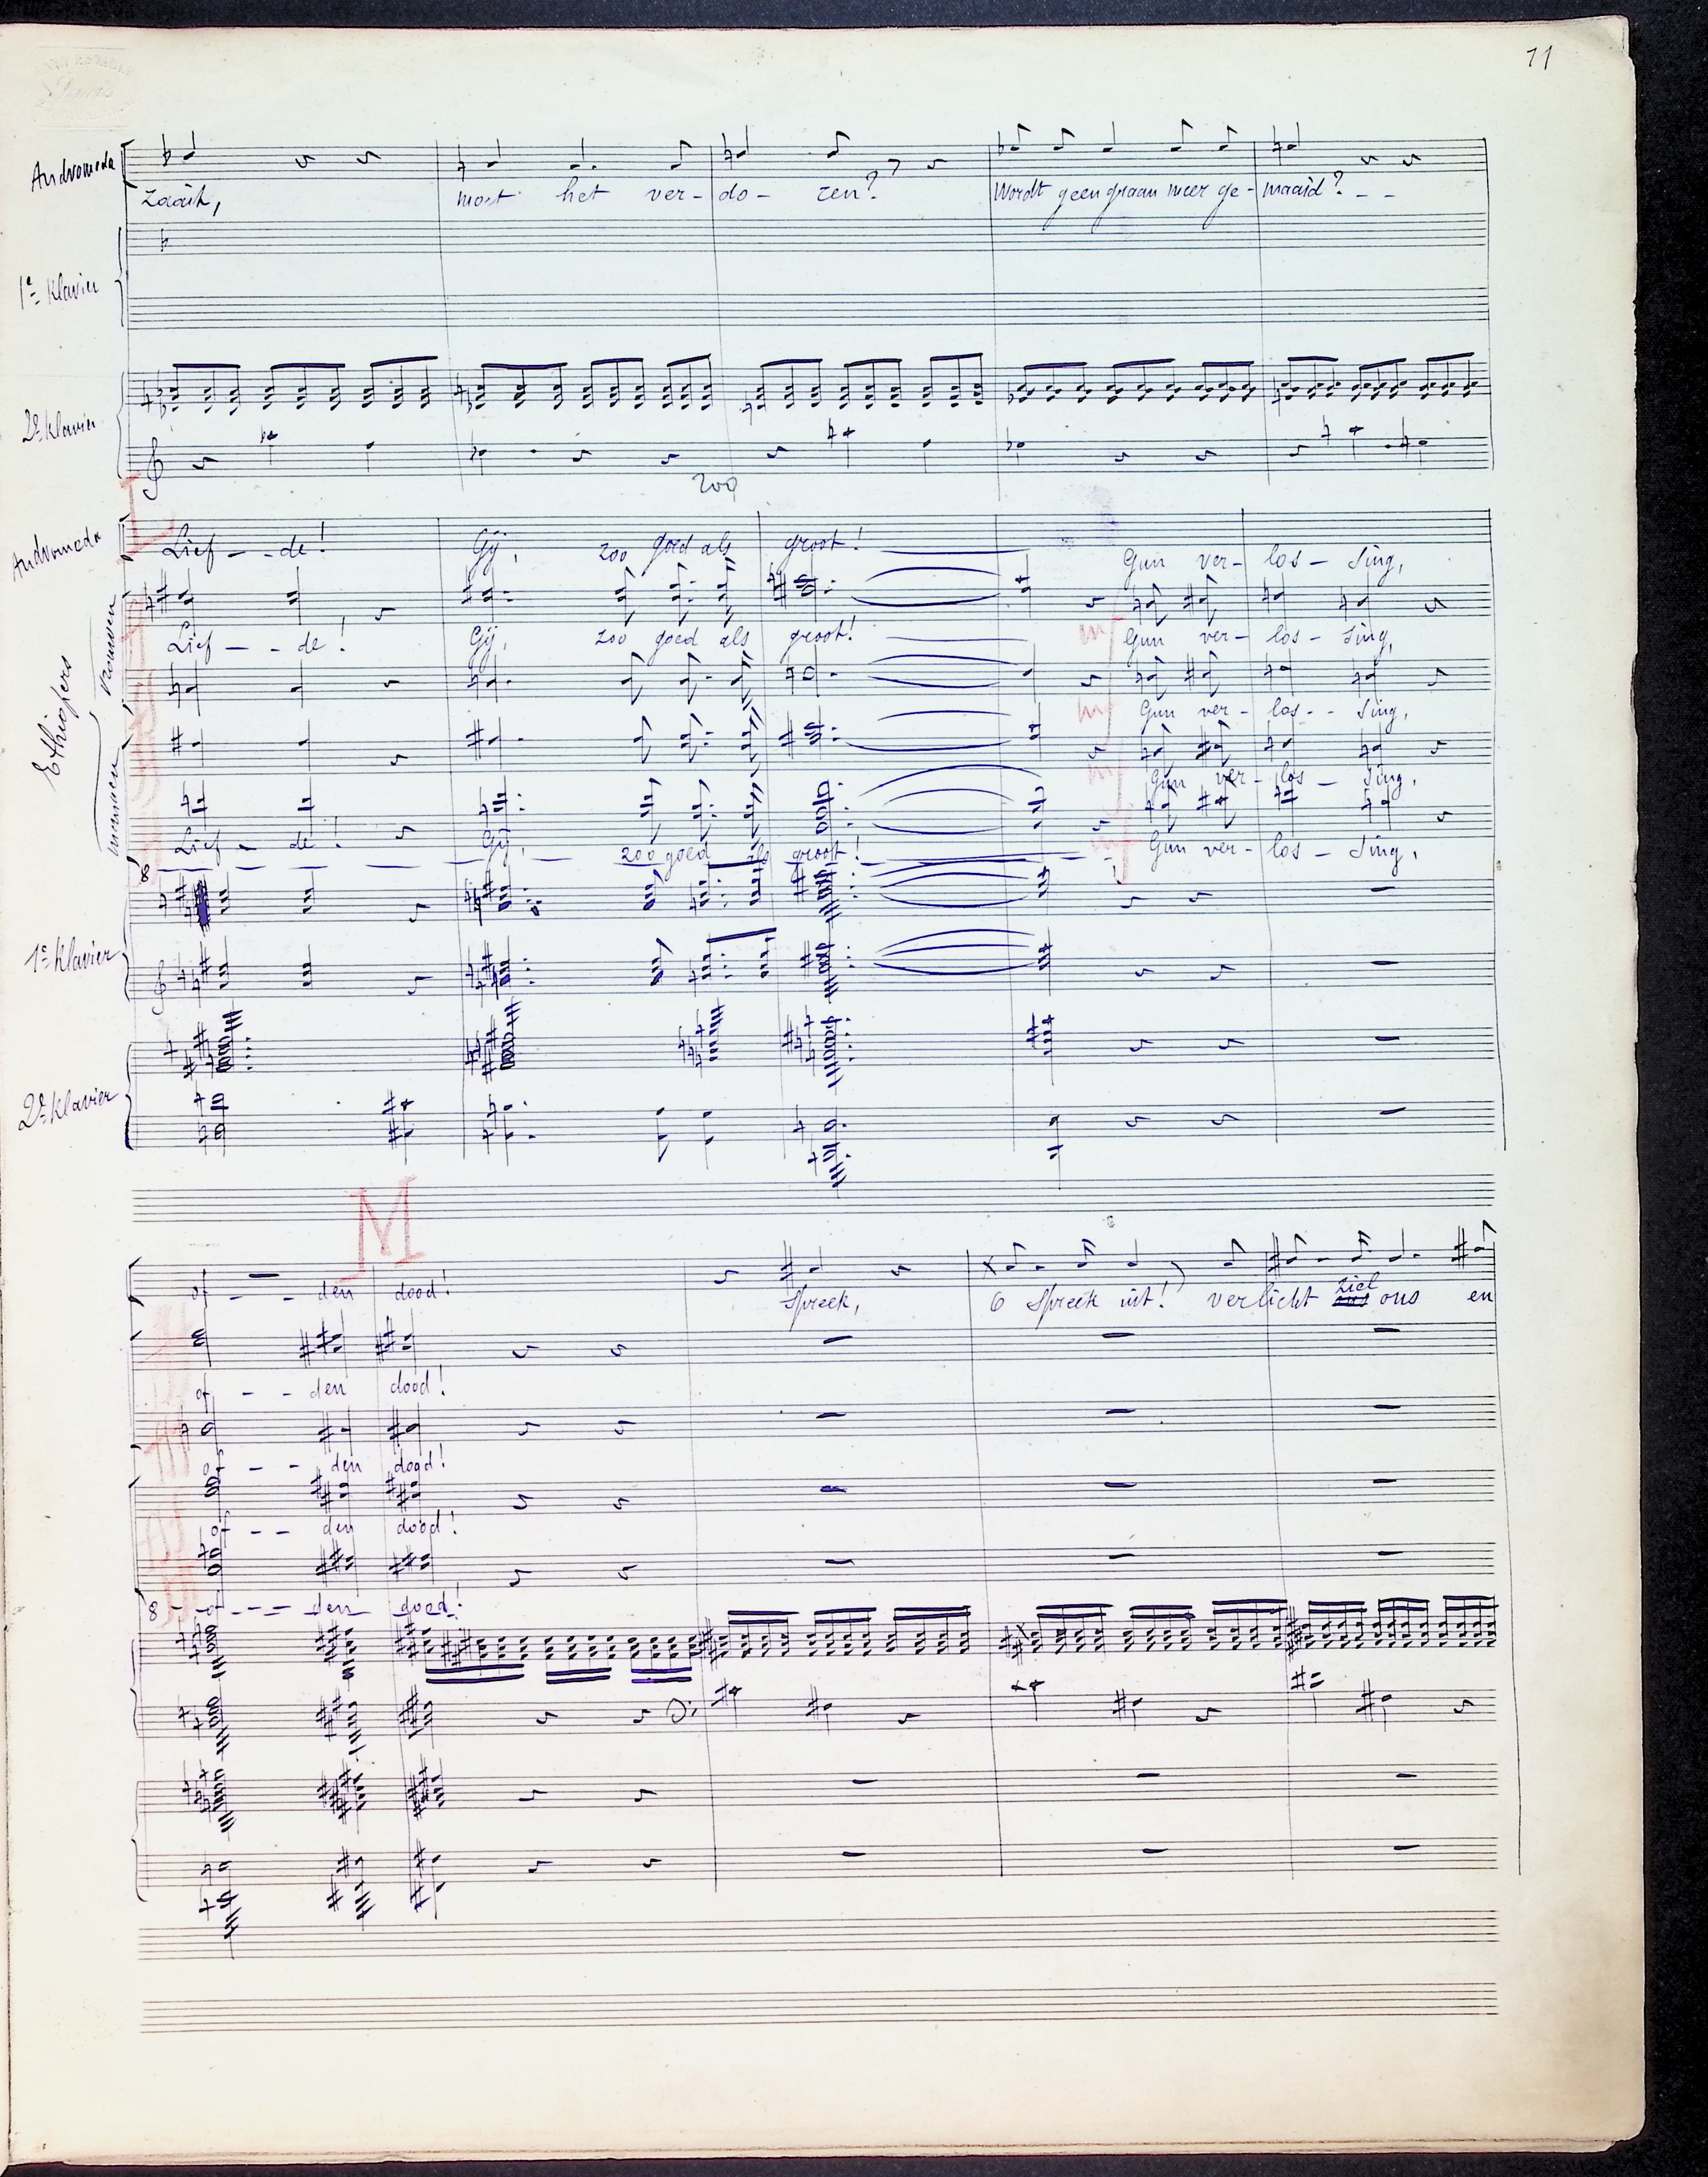 11
Andromeda
zaait, most het ver- do- zen? Wordt geen graan meer ge- maaid? _ _
1e Klavier
2e Klavier
200
Andromeda
Lief - - de! Gij, zoo goed als groot! Gun ver- los- sing,
Ethiopers
vrouwen
Lief - - de! Gij, zoo goed als groot! Gun ver- los- sing,
mf
Gun ver- los- - sing,
mf
mannen
Gun ver- los - sing,
mf
Lief - de! Gij, zoo goed als groot! Gun ver- los - sing,
mf
8
1e Klavier
2e Klavier
M
of - - den dood! Spreek, o spreek uit! verlicht ziel ons en
of - - den dood!
of - - den dood!
of - - den dood!
8 of - - - den dood!